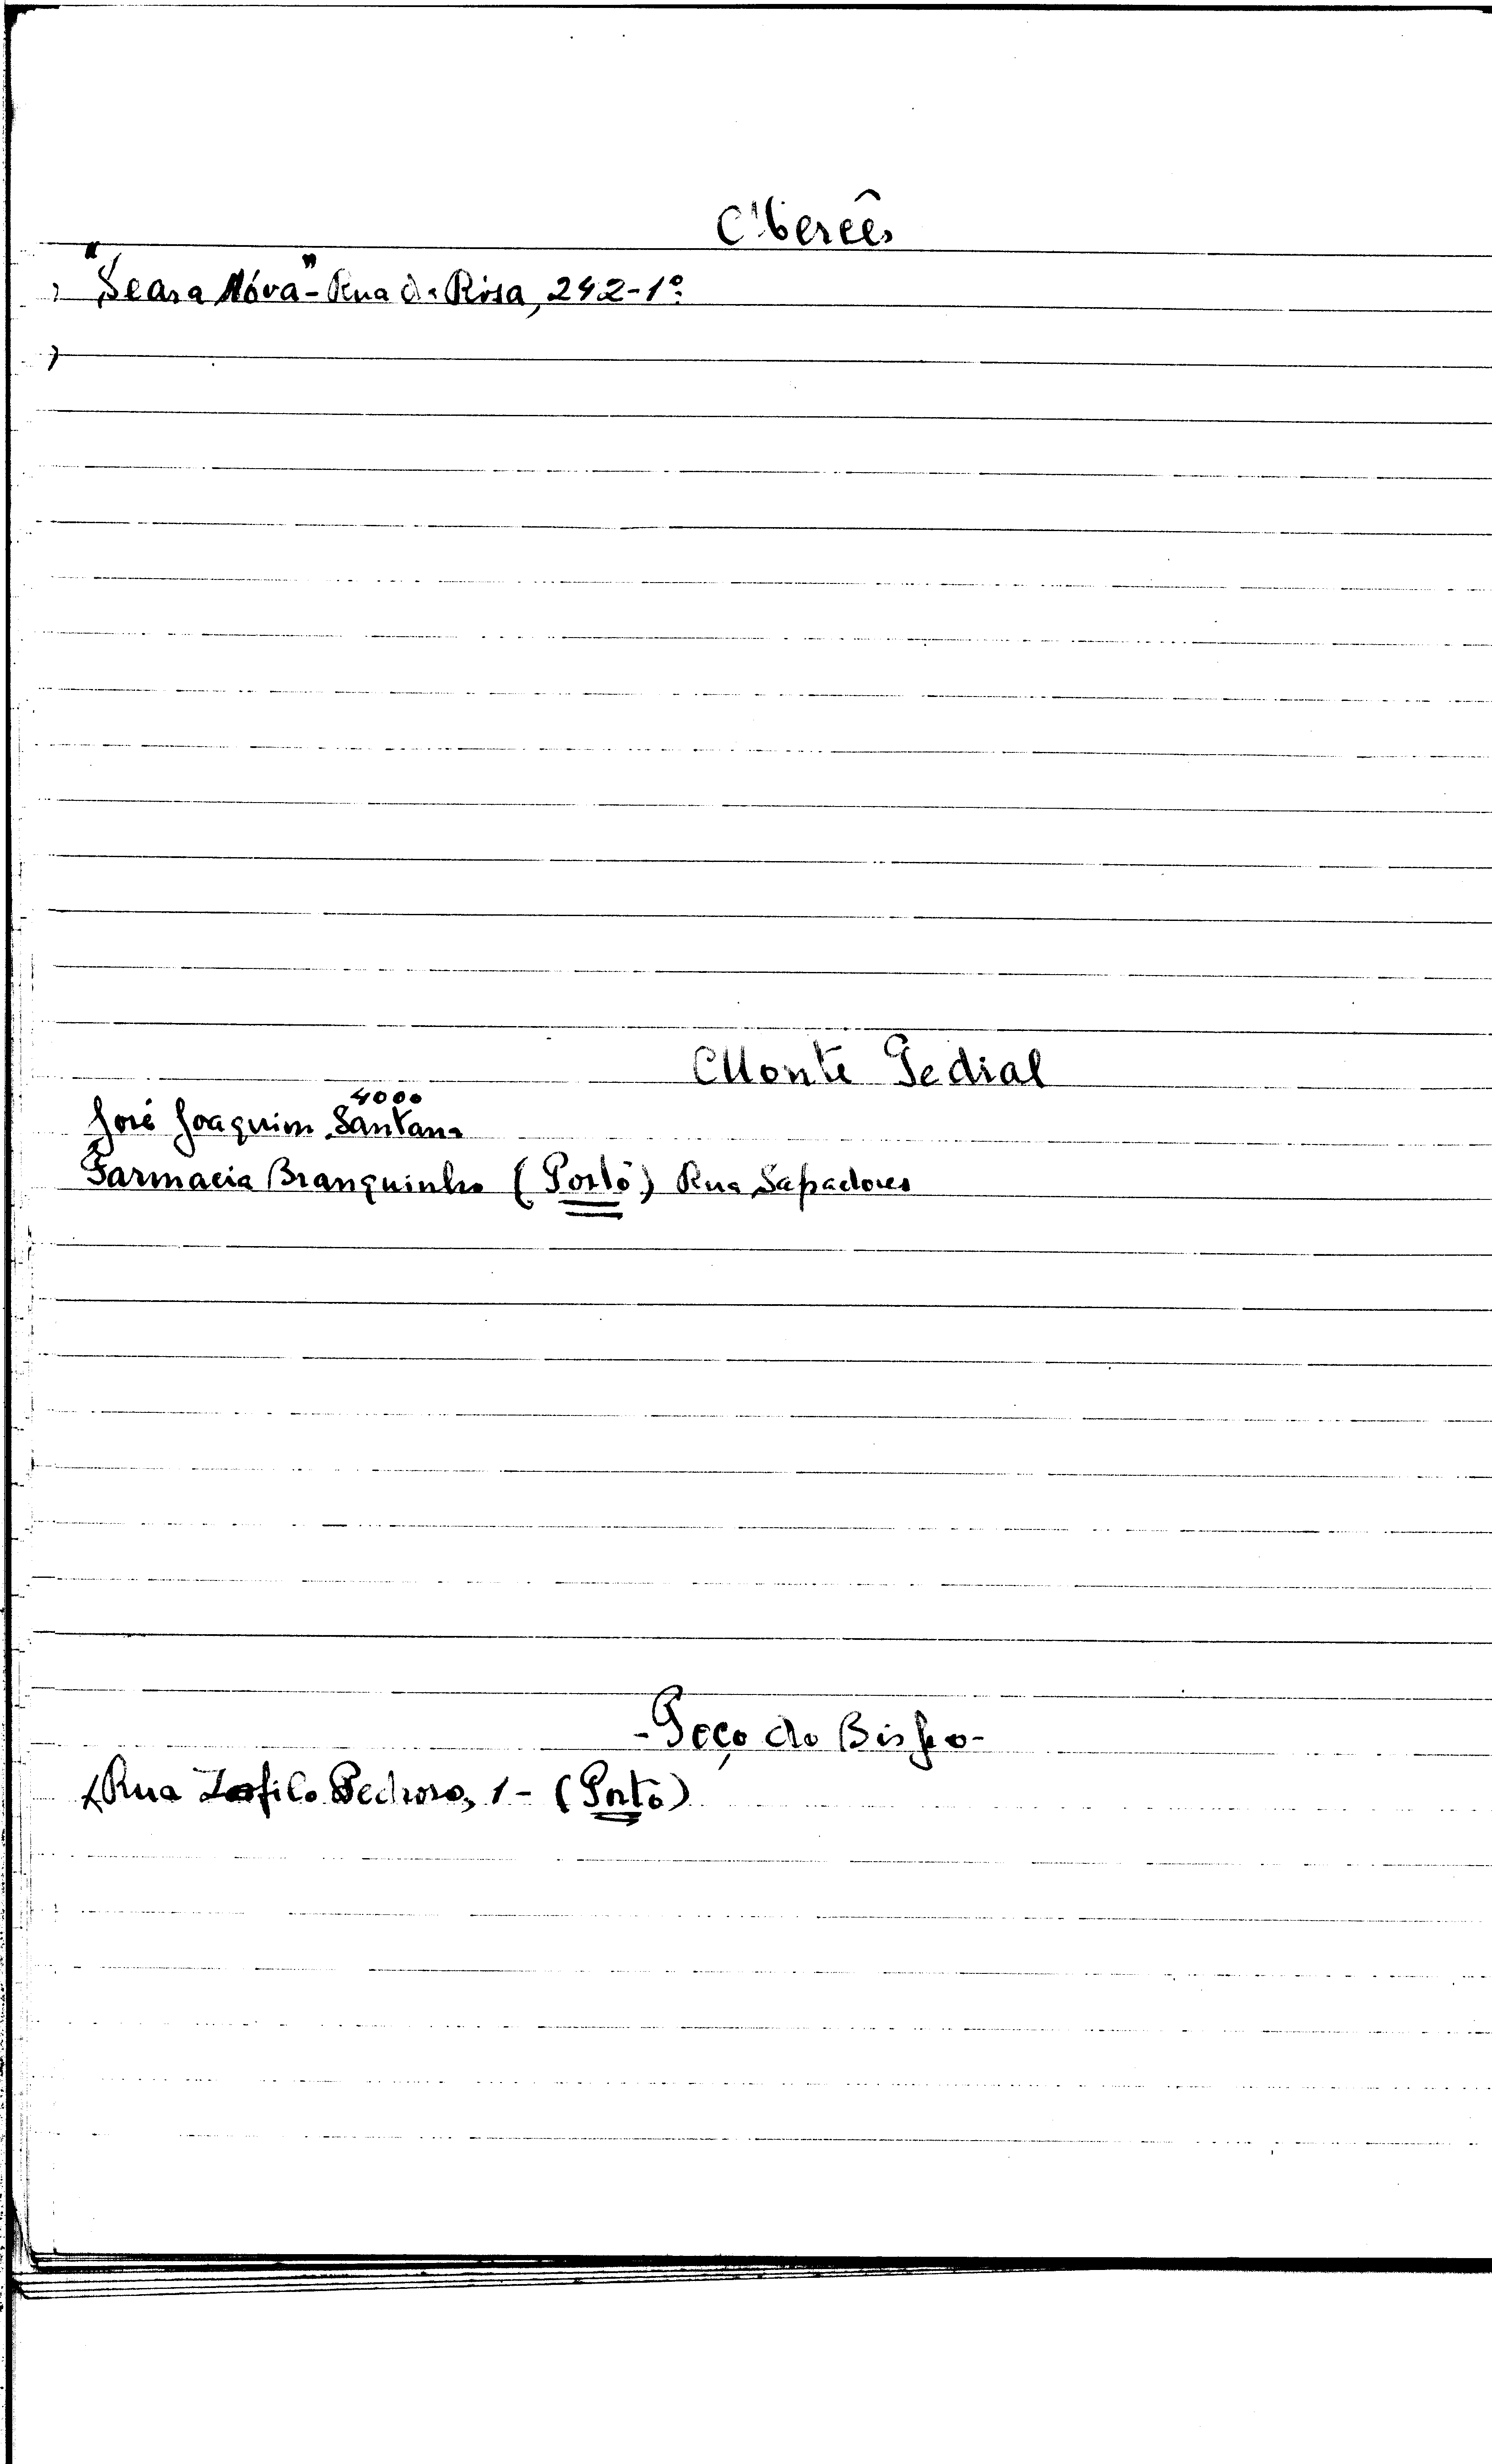 Mercês
"Seara Nóva" - Rua da Rosa, 242-1º
Monte Pedral
4000
José Joaquim Santana
Farmacia Branquinho (Porto) Rua Sapadores
- Poço do Bispo -
Rua Zofilo Pedroso, 1 - (Porto)